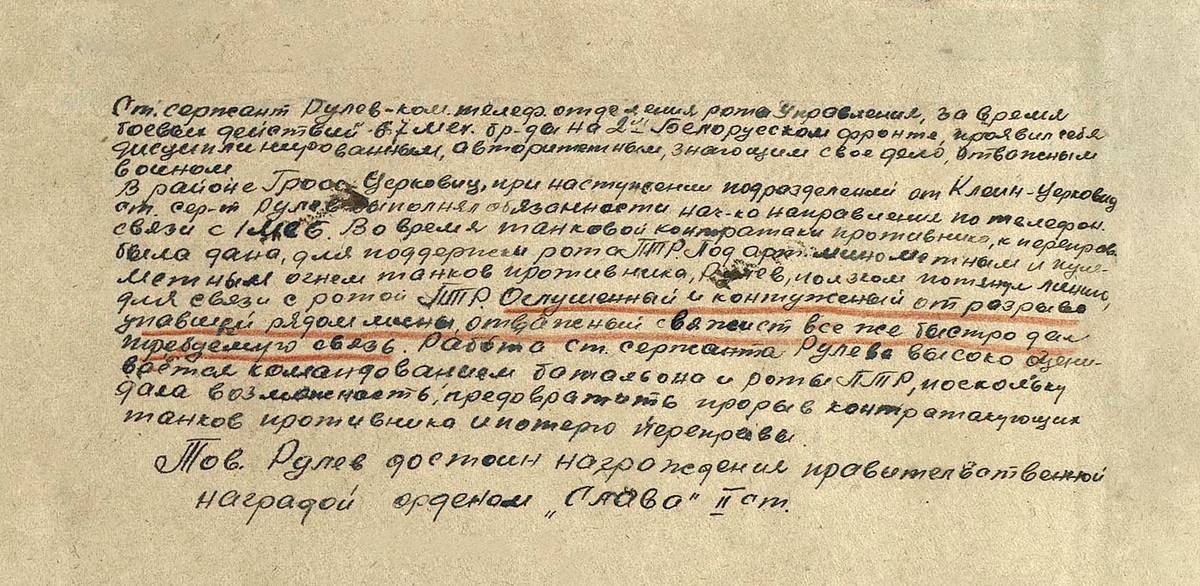 Ст. сержант Рулев-ком. телеф. отделения рота Управления, за время
боевых действий 67 мех. бр-да на 2ом Белорусском фронте, проявил себя
дисциплинированным, авторитетным, знающим свое дело, отважным
воином
В районе Гросс Церковиц, при наступлении подразделений от Клеин-Церковиц
ст. сер-т Рулев выполнял обязанности нач-ка направления по телефон.
связи с 1 МСБ. Во время танковой контратаки противника, к переправ.
была дана, для поддержки рота ПТР. Под арт. минометным и пуле-
метным огнем танков противника, Рулев, ползком потянул линию,
для связи с ротой ПТР. Оглушенный и контуженый от разрыва
упавшей рядом мины, отважный связист все же быстро дал
требуемую связь. Работа ст. сержанта Рулева высоко оцени-
вается командованием батальона и роты ПТР, поскольку
дала возможность, предовратить прорыв контратакующих
танков противника и потерю переправы.
Тов. Рулев достоин награждения правительственной
наградой орденом „Слава" II ст.